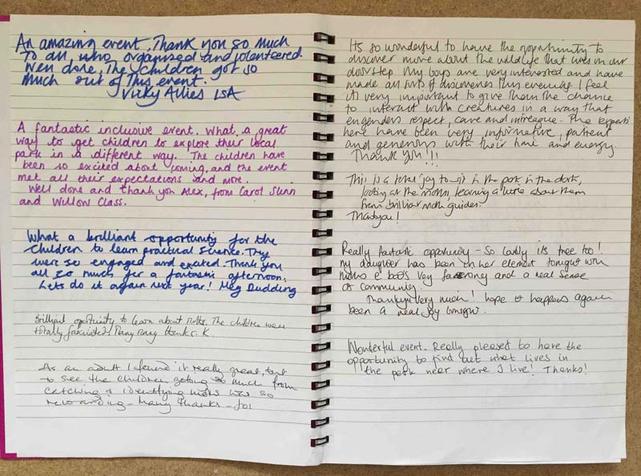 An amazing event. Thank you so much
to all who organised and volunteered.
Well done, The children got so
much out of this event.
Vicky Allies LSA
A fantastic inclusive event. What a great
way to get children to explore their local
park in a different way. The children have
been so excited about coming, and the event
met all their expectations and more.
Well done and thank you Alex, from Carol
and Willow Class.
What a brilliant opportunity for the
children to learn practical science. They
were so engaged and excited. Thank you
all so much for a fantastic afternoon.
Lets do it again next year! Meg Dudding
Brilliant opportunity to learn about Moths. The children were
totally fascinated. Many many thanks. K
As an adult I found it really great, but
to see the children getting so much from
catching & identifying moths was so
rewarding - Many thanks - Jo
Its so wonderful to have the opportunity to
discover more about the wildlife that lives on our
doorstep. My boys are very interested and have
made all sorts of discoveries this evening. I feel
it's very important to give them the chance
to interact with creatures in a way that
engenders respect, care and intreague. The experts
here have been very informative, patient
and generous with their time and energy.
Thank you!!!
This is a great joy to sit in the park in the dark,
looking at the moths, learning a little about them
from brilliant moth guides.
Thankyou!
Really fantastic opportunity - So lovely its free too!
my daughter has been in her element tonight with
moths & bats. Very fascinating and a real sense
of community.
Thankyou very much! hope it happens again
been a real joy tonight.
Wonderful event. Really pleased to have the
opportunity to find out what lives in
the park near where I live! Thanks!